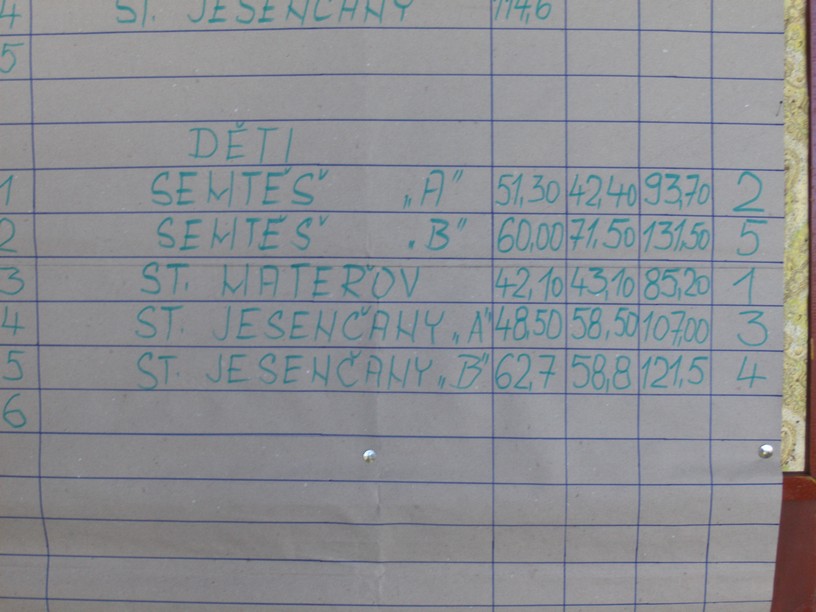 4 ST. JESENČANY 114,6
5
DĚTI
1 SEMTĚŠ „A" 51,30 42,40 93,70 2
2 SEMTĚŠ „B" 60,00 71,50 131,50 5
3 ST. MATEŘOV 42,10 43,10 85,20 1
4 ST. JESENČANY „A" 48,50 58,50 107,00 3
5 ST. JESENČANY „B" 62,7 58,8 121,5 4
6